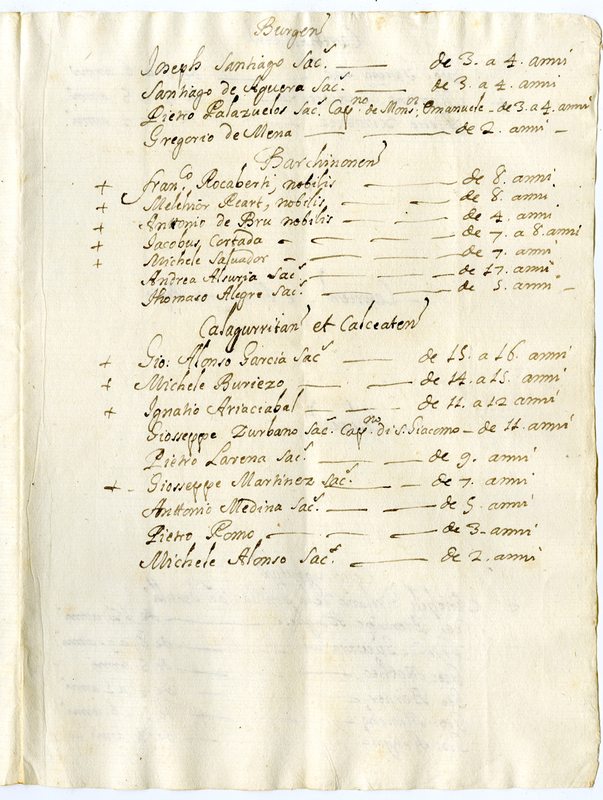 Burgen
Joseph Santiago Sac. —— de 3. a 4. anni
Santiago de Aguera Sac. —— de 3. a 4. anni
Pietro Palazuelos Sac. Capno. de Monsr. Emanuele - de 3. a 4. anni
Gregorio de Mena —— de 2. anni —
Barchinonen
+ Franco. Rocaberti, nobilis —— de 8. anni
+ Melchior Peart, nobilis —— de 8. anni
+ Anttonio de Bru nobilis —— de 4. anni
+ Jacobus Cortada —— de 7. a 8. anni
+ Michele Saluador —— de 7. anni
Andrea Alsuria Sac. —— de 17. anni
Thomaso Alegre Sac. —— de 5. anni —
Calagurritan et Calceaten
+ Gio: Alonso Garcia Sac. —— de 15. a 16. anni
+ Michele Buriezo —— de 14. a 15. anni
+ Ignatio Arraciabal —— de 11. a 12 anni
Gioseppe Zurbano Sac. Capno. di S. Giacomo — de 11. anni
Pietro Larena Sac. —— de 9. anni
+ - Gioseppe Martinez Sac. —— de 7. anni
Anttonio Medina Sac. —— de 5. anni
Pietro Romo —— de 3 - anni
Michele Alonso Sac. —— de 2. anni